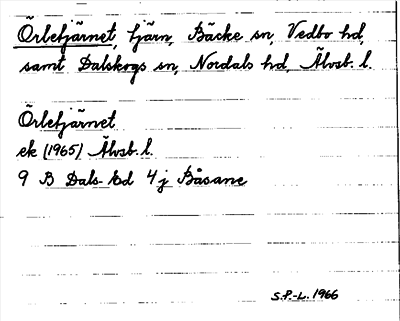 Örletjärnet, tjärn, Bäcke sn, Vedbo hd,
samt Dalskogs sn, Nordals hd, Älvsb. l.
Örletjärnet
ek (1965) Älvsb. l.
9 B Dals-Ed 4j Båsane
S.P.-L. 1966